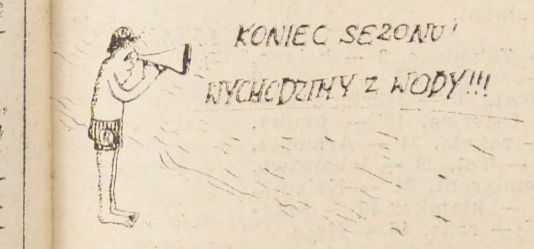 KONIEC SEZONU!
WYCHODZIMY Z WODY!!!